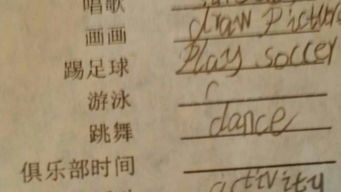 唱歌
画画 draw Picture
踢足球 Play soccer
游泳
跳舞 dance
俱乐部时间
activity